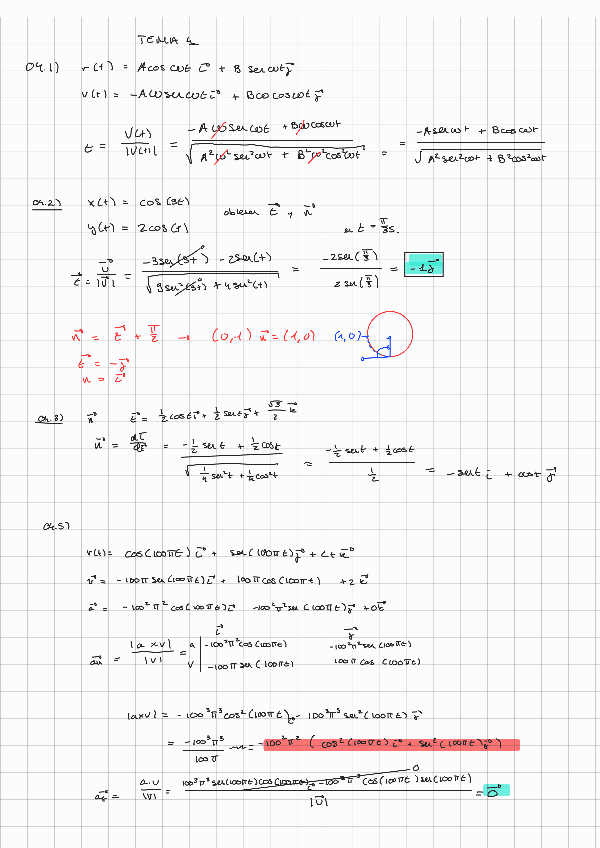 TEMA 4
04.1) r(t) = A cos ωt i + B sen ωt j
v(t) = -Aω sen ωt i + Bω cos ωt j
t = V(t) / |V(t)| = (-Aω sen ωt + Bω cos ωt) / √(A²ω² sen² ωt + B²ω² cos² ωt) = = (-A sen ωt + B cos ωt) / √(A² sen² ωt + B² cos² ωt)
04.2) x(t) = cos (3t)
obtener t y n
y(t) = 2 cos (t)
en t = π/3 s.
t = v / |v| = (-3 sen(3t) - 2 sen(t)) / √(9 sen²(3t) + 4 sen²(t)) = -2 sen(π/3) / 2 sen(π/3) = -1j
n = t + π/2 → (0,1) n = (1,0) (1,0)
t = -j
n = i
04.3) n t = 1/2 cos t i + 1/2 sen t j + √3/2 k
n = dt/dt = (-1/2 sen t + 1/2 cos t) / √(1/4 sen² t + 1/4 cos² t) = (-1/2 sen t + 1/2 cos t) / 1/2 = - sen t i + cos t j
04.5)
r(t) = cos (100πt) i + sen (100πt) j + 2t k
v = -100π sen (100πt) i + 100π cos (100πt) + 2 k
a = -100²π² cos (100πt) i -100²π² sen (100πt) j + 0k
i j
an = |a x v| / |v| = a | -100²π² cos (100πt) -100²π² sen (100πt)
v | -100π sen (100πt) 100π cos (100πt)
|axv| = -100³π³ cos² (100πt) i - 100³π³ sen² (100πt) j
= -100³π³ / 100π = -100²π² (cos² (100πt) i + sen² (100πt) j)
= a.v / |v| = 100³π³ sen(100πt) cos(100πt) i - 100³π³ cos(100πt) sen(100πt) 0 / |v| = 0